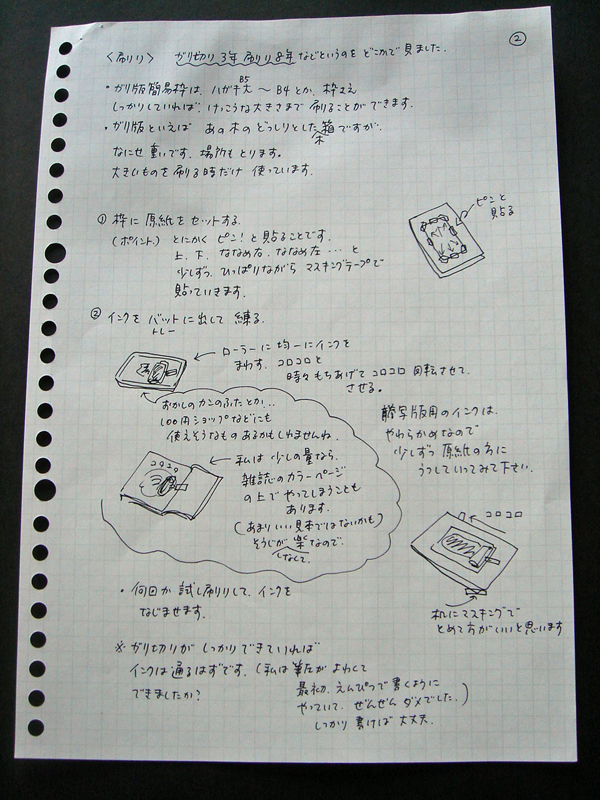 ②
〈刷り〉 ガリ切り3年 刷り8年 などというのを どこかで見ました.
・ガリ版簡易枠は、ハガキ大 〜 B4とか、枠さえ
B5
しっかりしていれば、けっこうな大きさまで 刷ることができます.
・ガリ版といえば あの木のどっしりとした箱ですが、
木
なにせ重いです. 場所もとります。
大きいものを刷る時だけ 使っています.
① 枠に原紙をセットする.
(ポイント) とにかく ピン!と貼ることです.
上、下、ななめ右、ななめ左…と
少しずつ、ひっぱりながら マスキングテープで
貼っていきます.
ピンと
貼る
② インクを バットに出して 練る.
トレー
ローラーに均一にインクを
まわす. コロコロと
時々もちあげてコロコロ 回転させて、
させる。
おかしのカンのふたとか…
100円ショップなどにも
使えそうなものあるかもしれませんね.
謄写版用のインクは、
やわらかめなので
少しずつ 原紙の方に
うつしていってみて下さい.
2020
私は少しの量なら、
雑誌のカラーページ
の上でやってしまうことも
あります.
(あまりいい見本ではないかも)
そうじが楽なので.
しなくて.
コロコロ
机にマスキングで
とめて方がいいと思います
・何回か試し刷りして、インクを
なじませます.
※ ガリ切りがしっかりできていれば
インクは通るはずです. (私は筆圧がよわくて
できましたか?
最初、えんぴつで書くように
やっていて、ぜんぜんダメでした.)
しっかり書けば大丈夫.